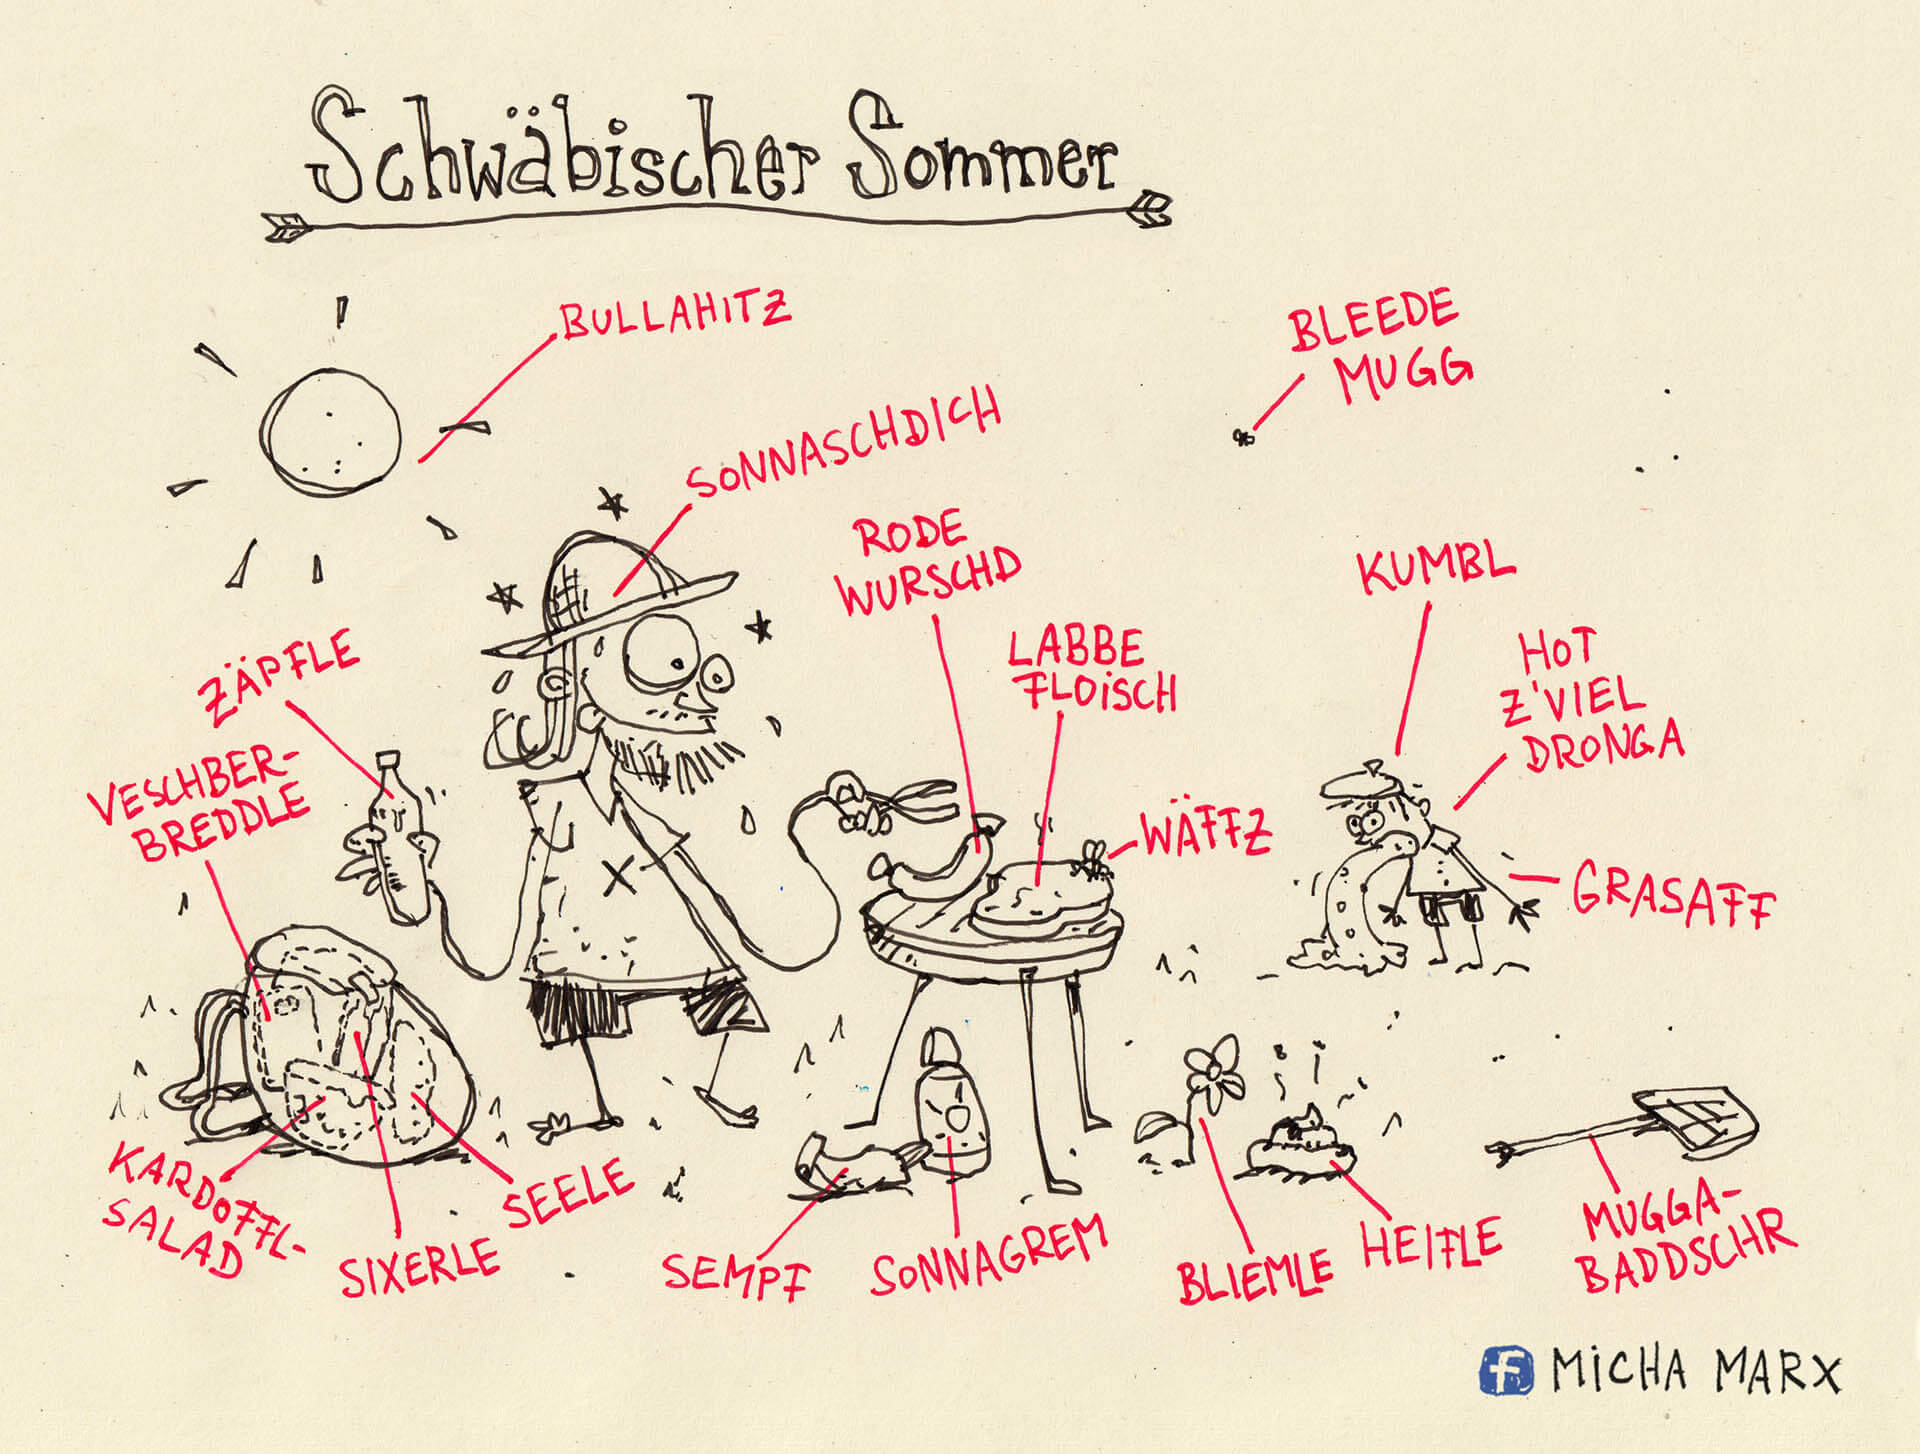 Schwäbischer Sommer
BULLAHITZ
BLEEDE
MUGG
SONNASCHDICH
RODE
WURSCHD
KUMBL
LABBE
FLOISCH
HOT
Z'VIEL
DRONGA
ZÄPFLE
VESCHBER-
BREDDLE
WÄFFZ
GRASAFF
KARDOFFL-
SALAD
SIXERLE
SEELE
SEMPF
SONNAGREM
BLIEMLE
HEIFLE
MUGGA-
BADDSCHR
f MICHA MARX